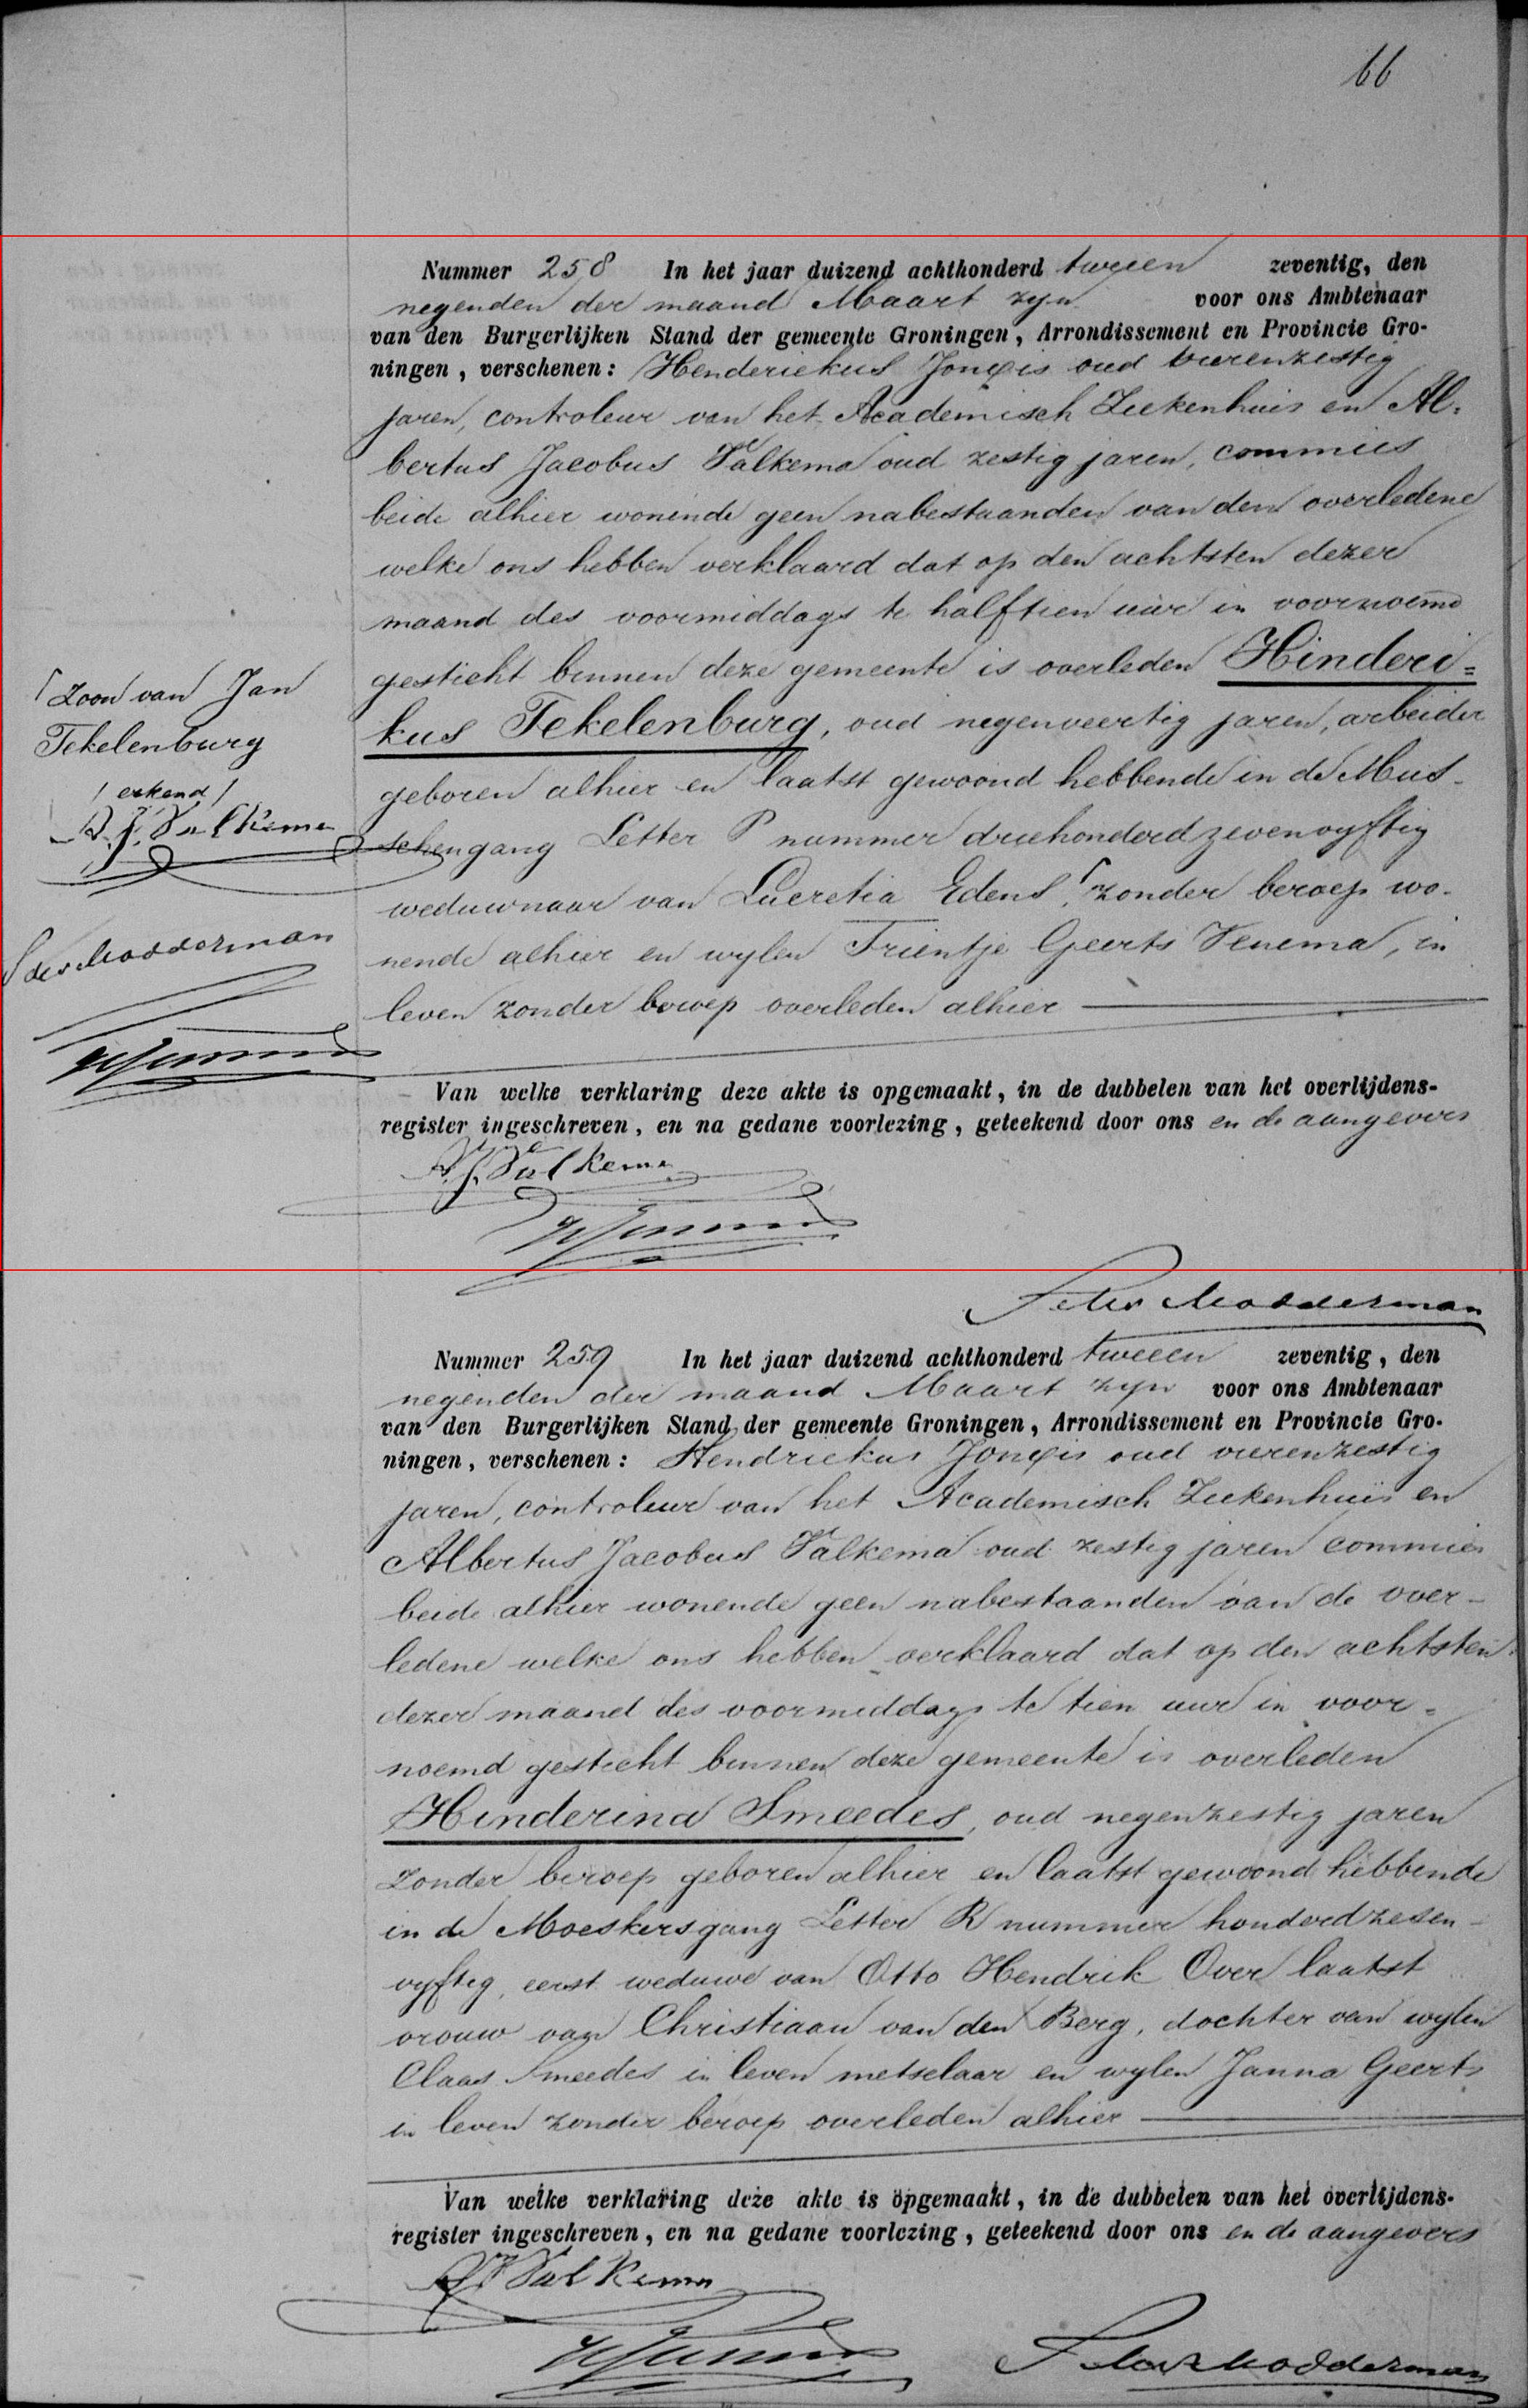 66
Nummer 258 In het jaar duizend achthonderd tweeen zeventig, den
negenden der maand Maart zyn voor ons Ambtenaar
van den Burgerlijken Stand der gemeente Groningen, Arrondissement en Provincie Gro-
ningen, verschenen: Henderiekus Jonxis oud vierenzestig
jaren, controleur van het Academisch Ziekenhuis en Al=
bertus Jacobus Valkema oud zestig jaren, commies
beide alhier wonende geen nabestaanden van den overledene
welke ons hebben verklaard dat op den achtsten dezer
maand des voormiddags te halftien uur in voornoemd
gesticht binnen deze gemeente is overleden Hinderi=
kus Tekelenburg, oud negenveertig jaren, arbeider
geboren alhier en laatst gewoond hebbende in de Mus-
schengang Letter P nummer driehonderdzevenvyftig
weduwnaar van Lucretia Edens, ⌈ zonder beroep wo-
nende alhier en wylen Trientje Geerts Venema, in
leven zonder beroep overleden alhier
⌈ Zoon van Jan
Tekelenburg
/ erkend /
A. J. Valkema
Modderman
Van welke verklaring deze akte is opgemaakt, in de dubbelen van het overlijdens-
register ingeschreven, en na gedane voorlezing, geteekend door ons en de aangevers
A. J. Valkema
Modderman
Nummer 259 In het jaar duizend achthonderd tweeen zeventig, den
negenden der maand Maart zyn voor ons Ambtenaar
van den Burgerlijken Stand der gemeente Groningen, Arrondissement en Provincie Gro-
ningen, verschenen: Hendriekus Jonxis oud vierenzestig
jaren, controleur van het Academisch Ziekenhuis en
Albertus Jacobus Valkema oud zestig jaren commies
beide alhier wonende geen nabestaanden van de over-
ledene welke ons hebben verklaard dat op den achtsten
dezer maand des voormiddags te tien uur in voor=
noemd gesticht binnen deze gemeente is overleden
Hinderina Smeedes, oud negenzestig jaren
zonder beroep geboren alhier en laatst gewoond hebbende
in de Moeskersgang Letter R nummer honderdzesen-
vyftig, eerst weduwe van Otto Hendrik Over laatst
vrouw van Christiaan van den Berg, dochter van wylen
Claas Smeedes in leven metselaar en wylen Janna Geerts
in leven zonder beroep overleden alhier
Van welke verklaring deze akte is opgemaakt, in de dubbelen van het overlijdens-
register ingeschreven, en na gedane voorlezing, geteekend door ons en de aangevers
A. J. Valkema
Modderman